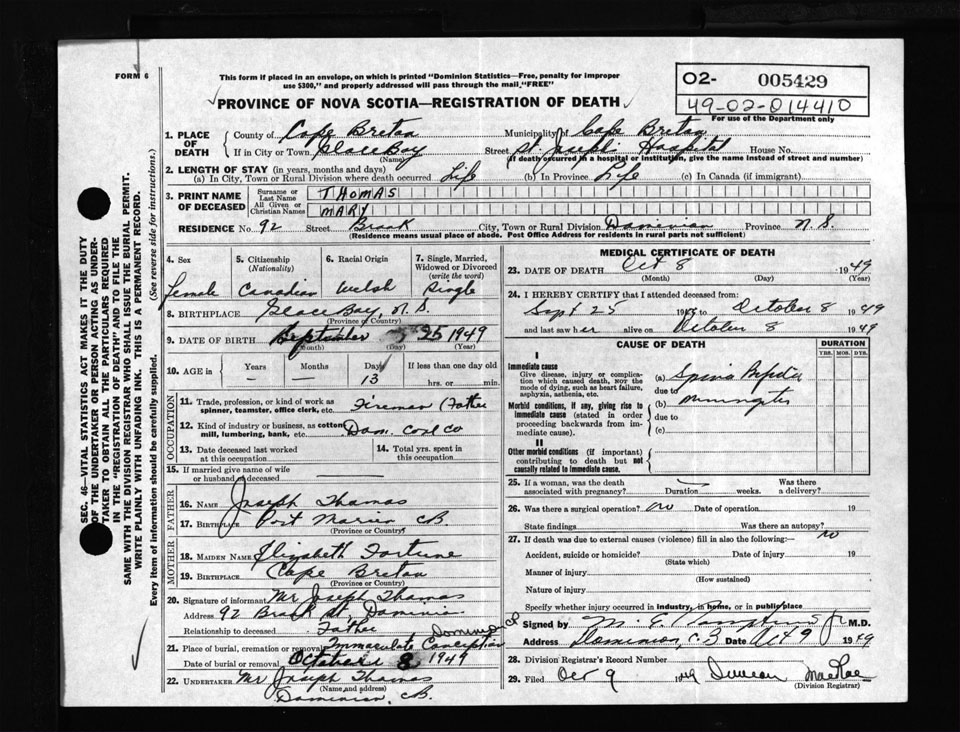 FORM 6
This form if placed in an envelope, on which is printed "Dominion Statistics—Free, penalty for improper
use $300," and properly addressed will pass through the mail "FREE"
O2- 005429
49-02-014410
For use of the Department only
PROVINCE OF NOVA SCOTIA—REGISTRATION OF DEATH
1. PLACE OF DEATH
County of Cape Breton Municipality of Cape Breton
If in City or Town Glace Bay Street St. Joseph Hospital House No.
(Name) (If death occurred in a hospital or institution, give the name instead of street and number)
2. LENGTH OF STAY (in years, months and days)
(a) In City, Town or Rural Division where death occurred Life (b) In Province Life (c) In Canada (if immigrant)
3. PRINT NAME OF DECEASED
Surname or Last Name THOMAS
All Given or Christian Names MARY
RESIDENCE No. 92 Street Brook City, Town or Rural Division Dominion Province N.S.
(Residence means usual place of abode. Post Office Address for residents in rural parts not sufficient)
4. Sex 5. Citizenship (Nationality) 6. Racial Origin 7. Single, Married, Widowed or Divorced (write the word)
female Canadian Welsh Single
8. BIRTHPLACE Glace Bay, N.S.
(Province or Country)
9. DATE OF BIRTH September 25 1949
(Month) (Day) (Year)
10. AGE in Years Months Days If less than one day old
— — 13 hrs. or min.
OCCUPATION
11. Trade, profession or kind of work as spinner, teamster, office clerk, etc. Fireman (Father
12. Kind of industry or business, as cotton mill, lumbering, bank, etc. Dom. Coal Co
13. Date deceased last worked at this occupation 14. Total yrs. spent in this occupation
15. If married give name of wife or husband of deceased
FATHER
16. NAME Joseph Thomas
17. BIRTHPLACE Port Morien CB
(Province or Country)
MOTHER
18. MAIDEN NAME Elizabeth Fortune
19. BIRTHPLACE Cape Breton
(Province or Country)
20. Signature of informant Mr Joseph Thomas
Address 92 Brook St. Dominion
Relationship to deceased Father
21. Place of burial, cremation or removal Immaculate Conception Dominion
Date of burial or removal October 8 1949
22. UNDERTAKER Mr Joseph Thomas
(Name and address)
Dominion CB.
MEDICAL CERTIFICATE OF DEATH
23. DATE OF DEATH Oct 8 1949
(Month) (Day)
24. I HEREBY CERTIFY that I attended deceased from:
Sept 25 1949 to October 8 1949
and last saw her alive on October 8 1949
CAUSE OF DEATH DURATION
YRS. MOS. DYS.
I
Immediate cause
Give disease, injury or complication which caused death, NOT the mode of dying, such as heart failure, asphyxia, asthenia, etc.
(a) Spina Bifida
due to
Morbid conditions, if any, giving rise to immediate cause (stated in order proceeding backwards from immediate cause).
(b) Meningitis
due to
(c)
II
Other morbid conditions (if important) contributing to death but not causally related to immediate cause.
25. If a woman, was the death associated with pregnancy? Duration weeks. Was there a delivery?
26. Was there a surgical operation? no Date of operation 19
State findings Was there an autopsy? no
27. If death was due to external causes (violence) fill in also the following:—
Accident, suicide or homicide? Date of injury 19
(State which)
Manner of injury
(How sustained)
Nature of injury
Specify whether injury occurred in industry, in home, or in public place
Signed by M. E. M.D.
Address Dominion, C.B Date Oct 9 1949
28. Division Registrar's Record Number
29. Filed Oct 9 1949 Duncan MacRae
(Division Registrar)
SEC. 46—VITAL STATISTICS ACT MAKES IT THE DUTY
OF THE UNDERTAKER OR PERSON ACTING AS UNDER-
TAKER TO OBTAIN ALL THE PARTICULARS REQUIRED
IN THE "REGISTRATION OF DEATH" AND TO FILE THE
SAME WITH THE DIVISION REGISTRAR WHO SHALL ISSUE THE BURIAL PERMIT.
WRITE PLAINLY WITH UNFADING INK. THIS IS A PERMANENT RECORD.
Every item of information should be carefully supplied. (See reverse side for instructions.)